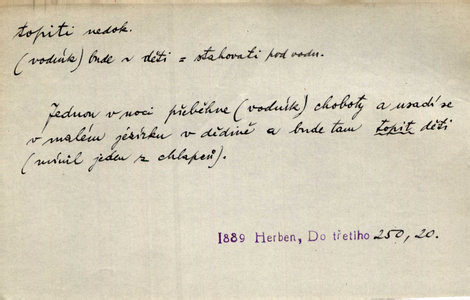 topiti nedok.
(vodník) bude děti = stahovati pod vodu.
Jednou v noci přeběhne (vodník) choboty a usadí se
v malém jézírku v dědině a bude tam topit děti
(mínil jeden z chlapců).
1889 Herben, Do třetího 250, 20.